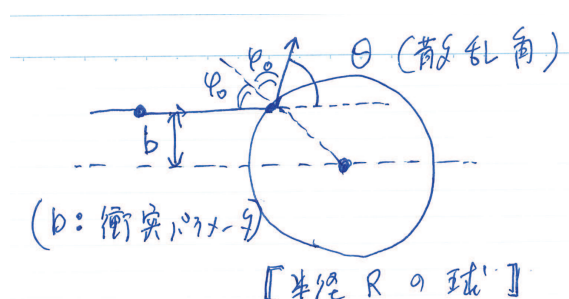 φ₀ φ₀ θ (散乱角)
b
(b: 衝突パラメータ)
〚半径 R の球〛